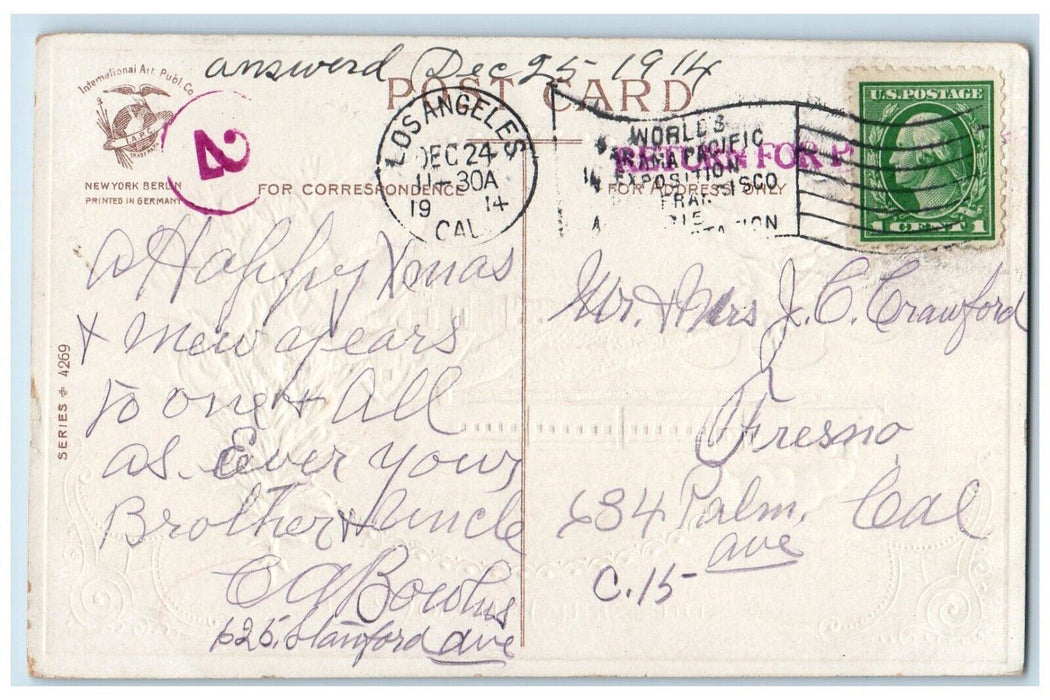 answerd Dec 25 1914
POST CARD
International Art Publ. Co.
I.A.P.C.
TRADE MARK
NEW YORK BERLIN
PRINTED IN GERMANY
2
LOS ANGELES
DEC 24
11-30A
1914
CAL.
WORLD'S
PANAMA PACIFIC
EXPOSITION
SAN FRANCISCO
RETURN FOR P
U.S. POSTAGE
1 CENT 1
FOR CORRESPONDENCE
FOR ADDRESS ONLY
A Happy Xmas
& New years
to one & All
as Ever your
Brother & Uncle
C A Bowlus
625. Stanford ave
SERIES # 4269
Mr. & Mrs J. C. Crawford
Fresno
634 Palm. Cal
ave
C. 15